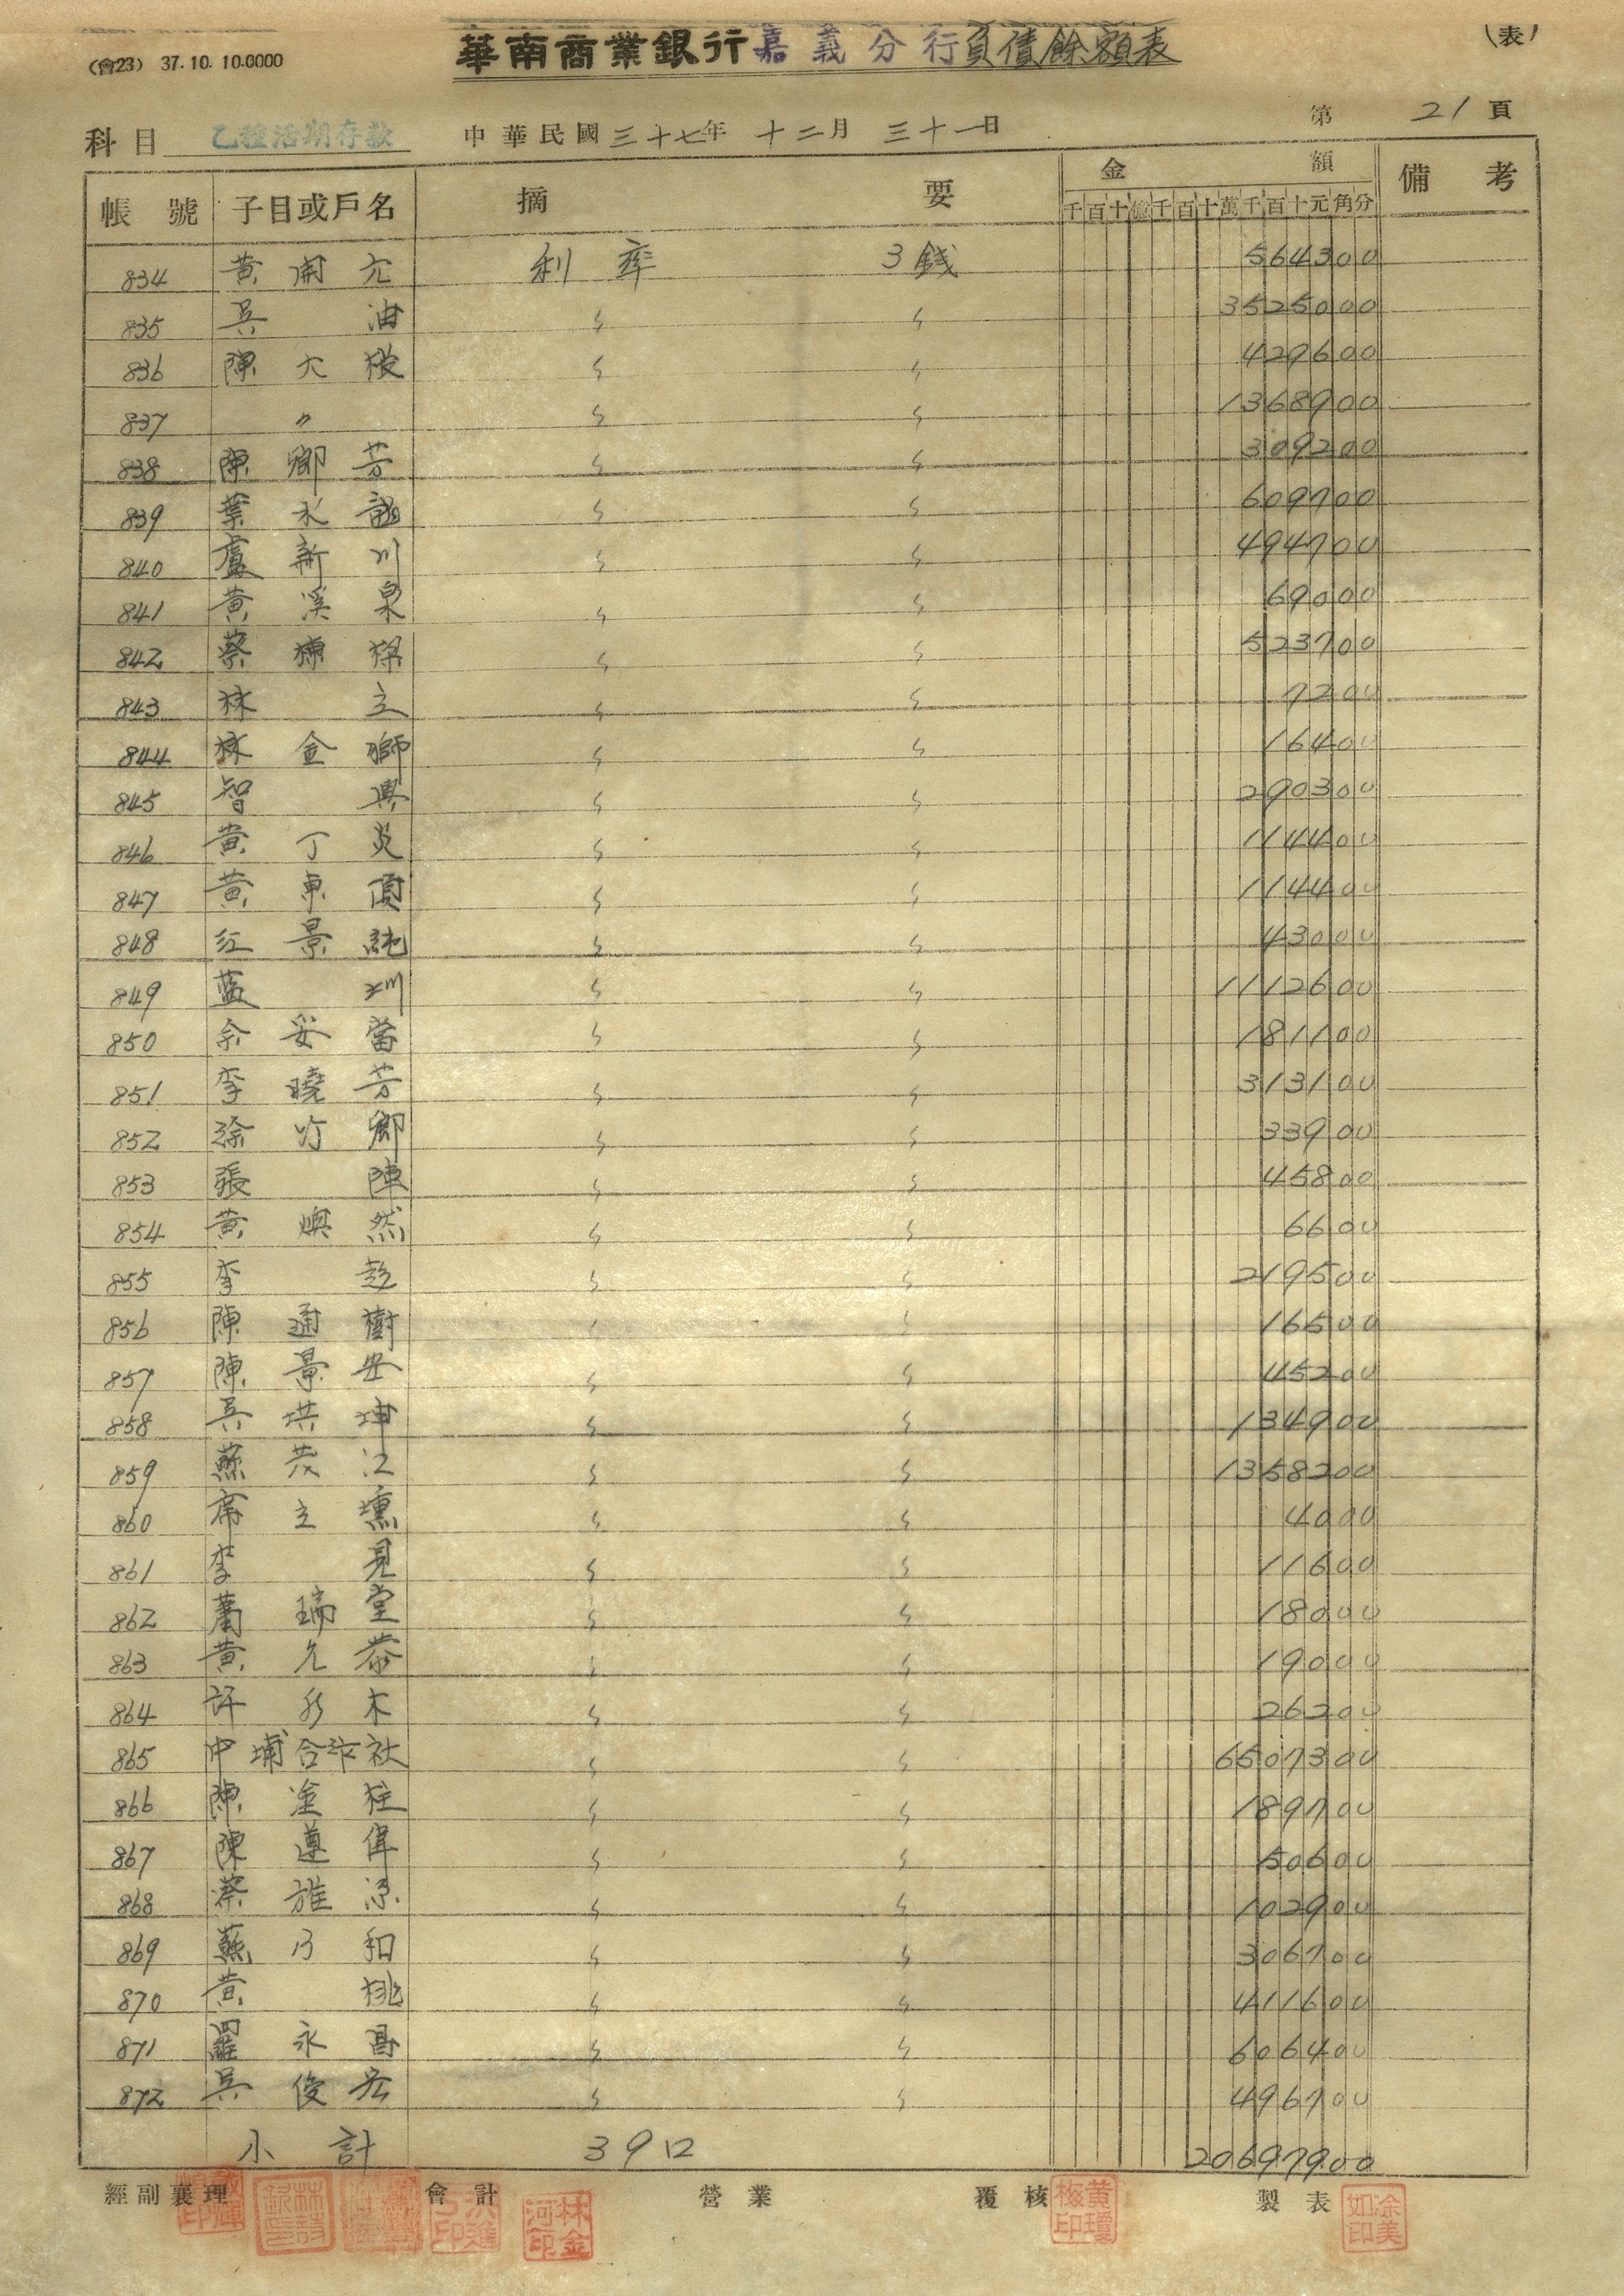 (會23) 37.10.10.0000
華南商業銀行嘉義分行負債餘額表
(表)
科目 乙種活期存款 中華民國三十七年十二月三十一日 第21頁
帳號 子目或戶名 摘要 金額 備考
千百十億千百十萬千百十元角分
834 黃開元 利率 3錢 564300
835 吳油 〃 〃 3525000
836 陳大 〃 〃 429600
837 〃 〃 〃 1368900
838 陳鄉芳 〃 〃 309200
839 葉永龍 〃 〃 609700
840 盧新川 〃 〃 494700
841 黃溪泉 〃 〃 69000
842 蔡 〃 〃 523700
843 林立 〃 〃 7200
844 林金獅 〃 〃 16400
845 智興 〃 〃 290300
846 黃丁炎 〃 〃 114400
847 黃東頂 〃 〃 114400
848 江景純 〃 〃 43000
849 藍圳 〃 〃 1112600
850 余妥當 〃 〃 181100
851 李曉芳 〃 〃 313100
852 涂竹鄉 〃 〃 33900
853 張陳 〃 〃 45800
854 黃煥然 〃 〃 6600
855 李趂 〃 〃 219500
856 陳通樹 〃 〃 16500
857 陳景安 〃 〃 45200
858 吳拱坤 〃 〃 134900
859 蘇茂江 〃 〃 1358200
860 席立壎 〃 〃 4000
861 李見 〃 〃 11600
862 蕭瑞堂 〃 〃 18000
863 黃允恭 〃 〃 19000
864 許彩木 〃 〃 26200
865 中埔合作社 〃 〃 6507300
866 陳塗柱 〃 〃 189700
867 陳遵偉 〃 〃 50600
868 蔡雅涼 〃 〃 102900
869 蘇乃和 〃 〃 306700
870 黃桃 〃 〃 411600
871 羅永昌 〃 〃 606400
872 吳俊宏 〃 〃 496700
小計 39口 20697900
經副襄理 會計 營業 覆核 製表
林金河印
黃瓊椒印
涂美如印